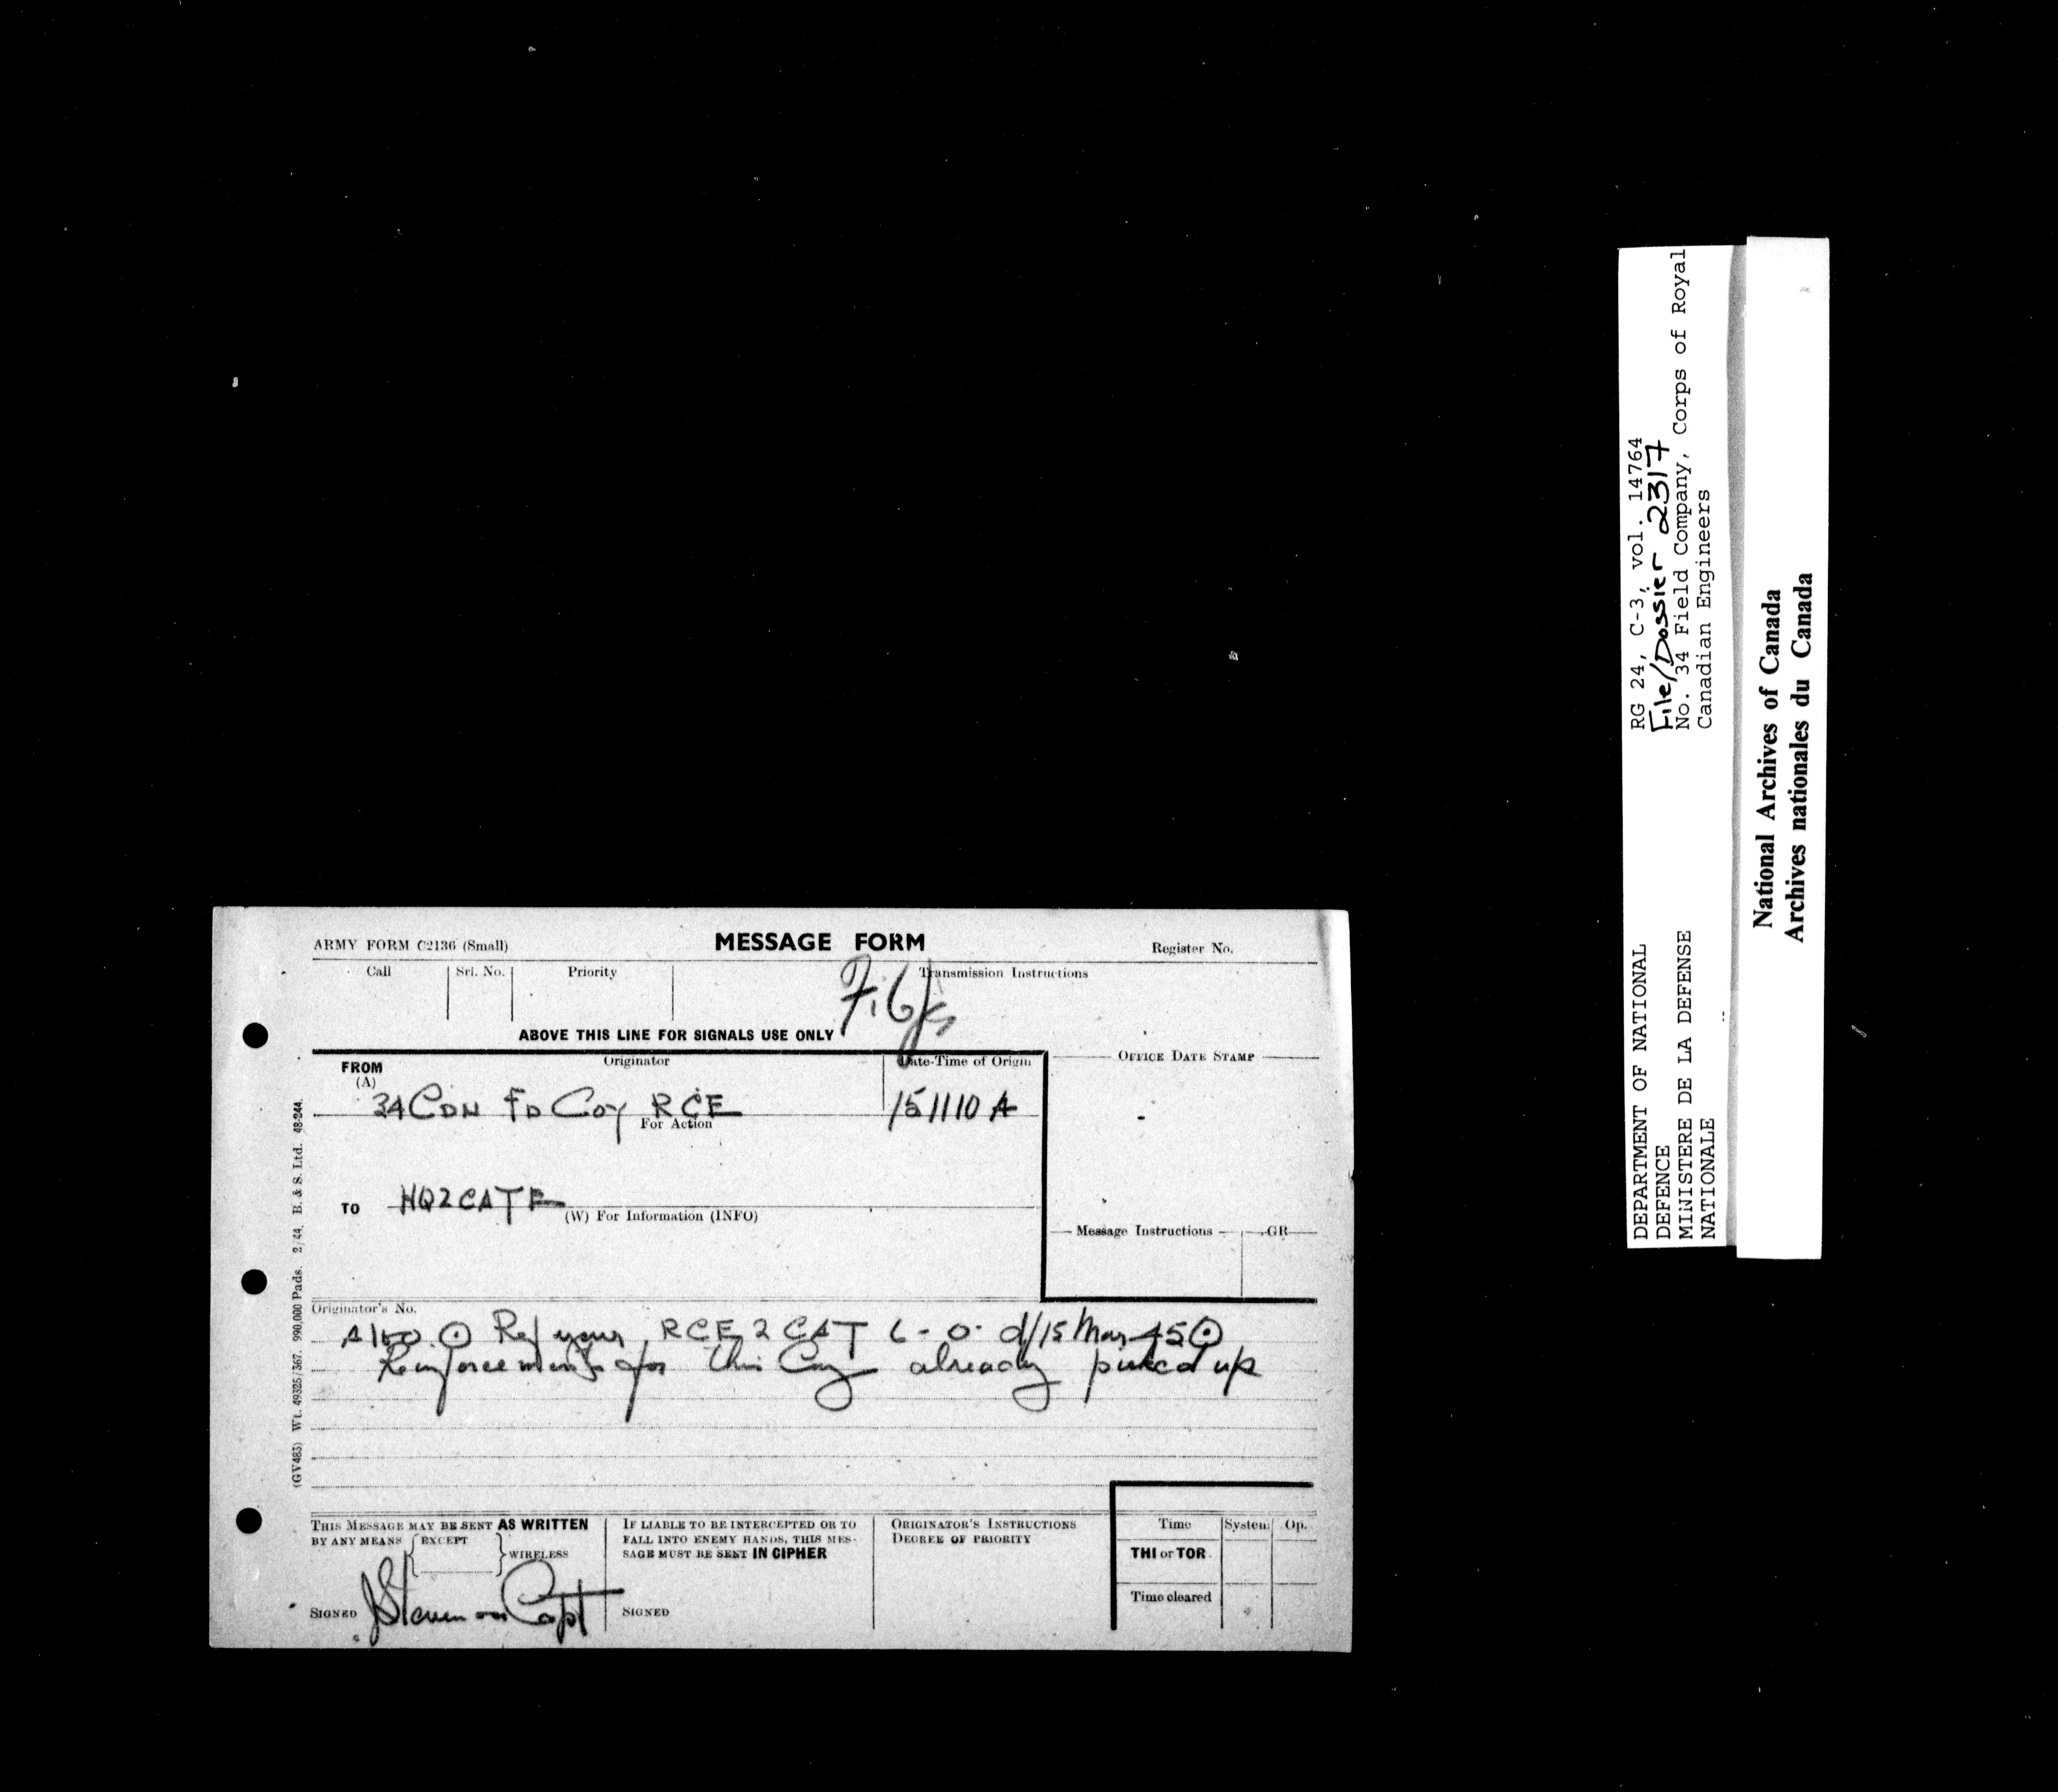 ARMY FORM C2136 (Small)
MESSAGE FORM
Register No.
Call
Srl. No.
Priority
Transmission Instructions
ABOVE THIS LINE FOR SIGNALS USE ONLY
FROM
(A)
Originator
Date-Time of Origin
OFFICE DATE STAMP
34 CDN FD COY RCE
151110 A
For Action
TO
HQ2CATE
(W) For Information (INFO)
Message Instructions
GR
Originator's No.
A150 ⊙ Ref your RCE 2 CAT 6-0 d/15 Mar 45 ⊙
Reinforcements for this Coy already picked up
THIS MESSAGE MAY BE SENT AS WRITTEN
BY ANY MEANS
EXCEPT
WIRELESS
SIGNED
Capt
IF LIABLE TO BE INTERCEPTED OR TO
FALL INTO ENEMY HANDS, THIS MES-
SAGE MUST BE SENT IN CIPHER
SIGNED
ORIGINATOR'S INSTRUCTIONS
DEGREE OF PRIORITY
Time
System
Op.
THI or TOR
Time cleared
(GV483) Wt. 49325/367. 990,000 Pads. 2/44. B. & S. Ltd. 48-244.
DEPARTMENT OF NATIONAL
DEFENCE
MINISTERE DE LA DEFENSE
NATIONALE
RG 24, C-3, vol. 14764
File/Dossier 2317
No. 34 Field Company, Corps of Royal
Canadian Engineers
National Archives of Canada
Archives nationales du Canada